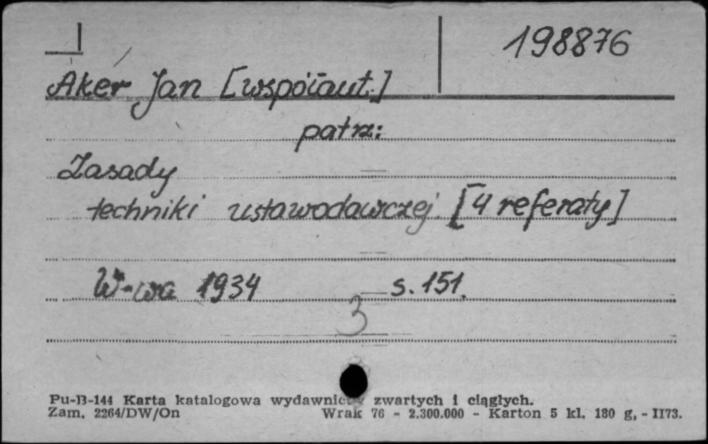 198876
Aker Jan [współaut.]
patrz:
Zasady
techniki ustawodawczej. [4 referaty]
W-wa 1934 s. 151.
3
Pu-B-144 Karta katalogowa wydawnictw zwartych i ciągłych.
Zam. 2264/DW/On Wrak 76 - 2.300.000 - Karton 5 kl. 180 g, - II73.